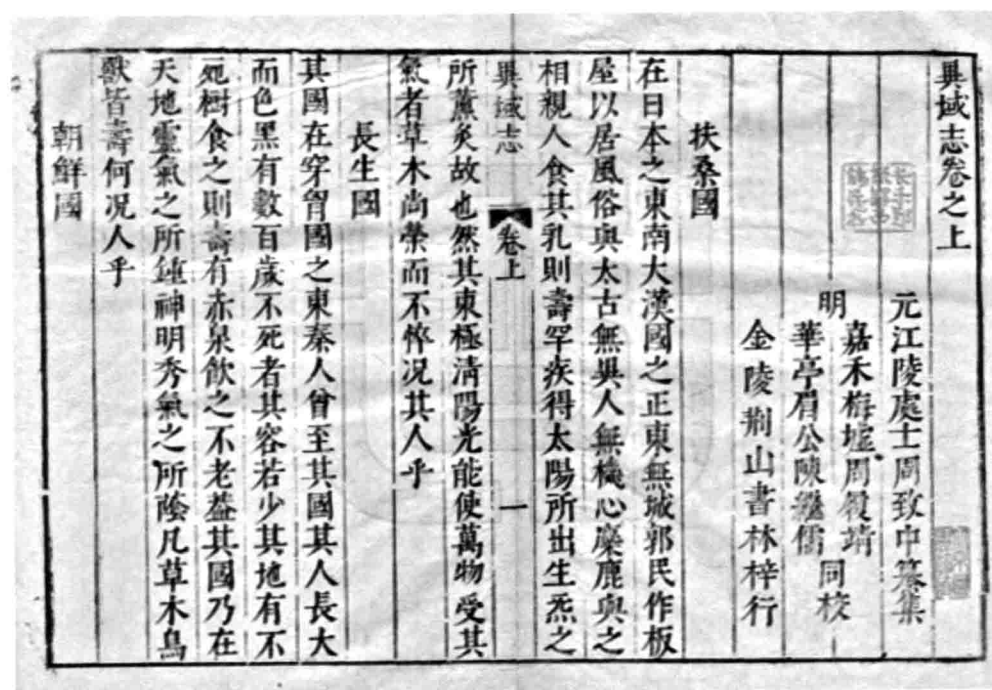 異域志卷之上
元江陵處士周致中纂集
明
嘉禾梅墟周履靖
華亭眉公陳繼儒
同校
金陵荆山書林梓行
扶桑國
在日本之東南大漢國之正東無城郭民作板
屋以居風俗與太古無異人無機心麋鹿與之
相親人食其乳則壽罕疾得太陽所出生炁之
異域志
卷上
一
所薰炙故也然其東極清陽光能使萬物受其
氣者草木尚榮而不悴況其人乎
長生國
其國在穿胷國之東秦人曾至其國其人長大
而色黑有數百歲不死者其容若少其地有不
死樹食之則壽有赤泉飲之不老蓋其國乃在
天地靈氣之所鍾神明秀氣之所蔭凡草木鳥
獸皆壽何况人乎
朝鮮國